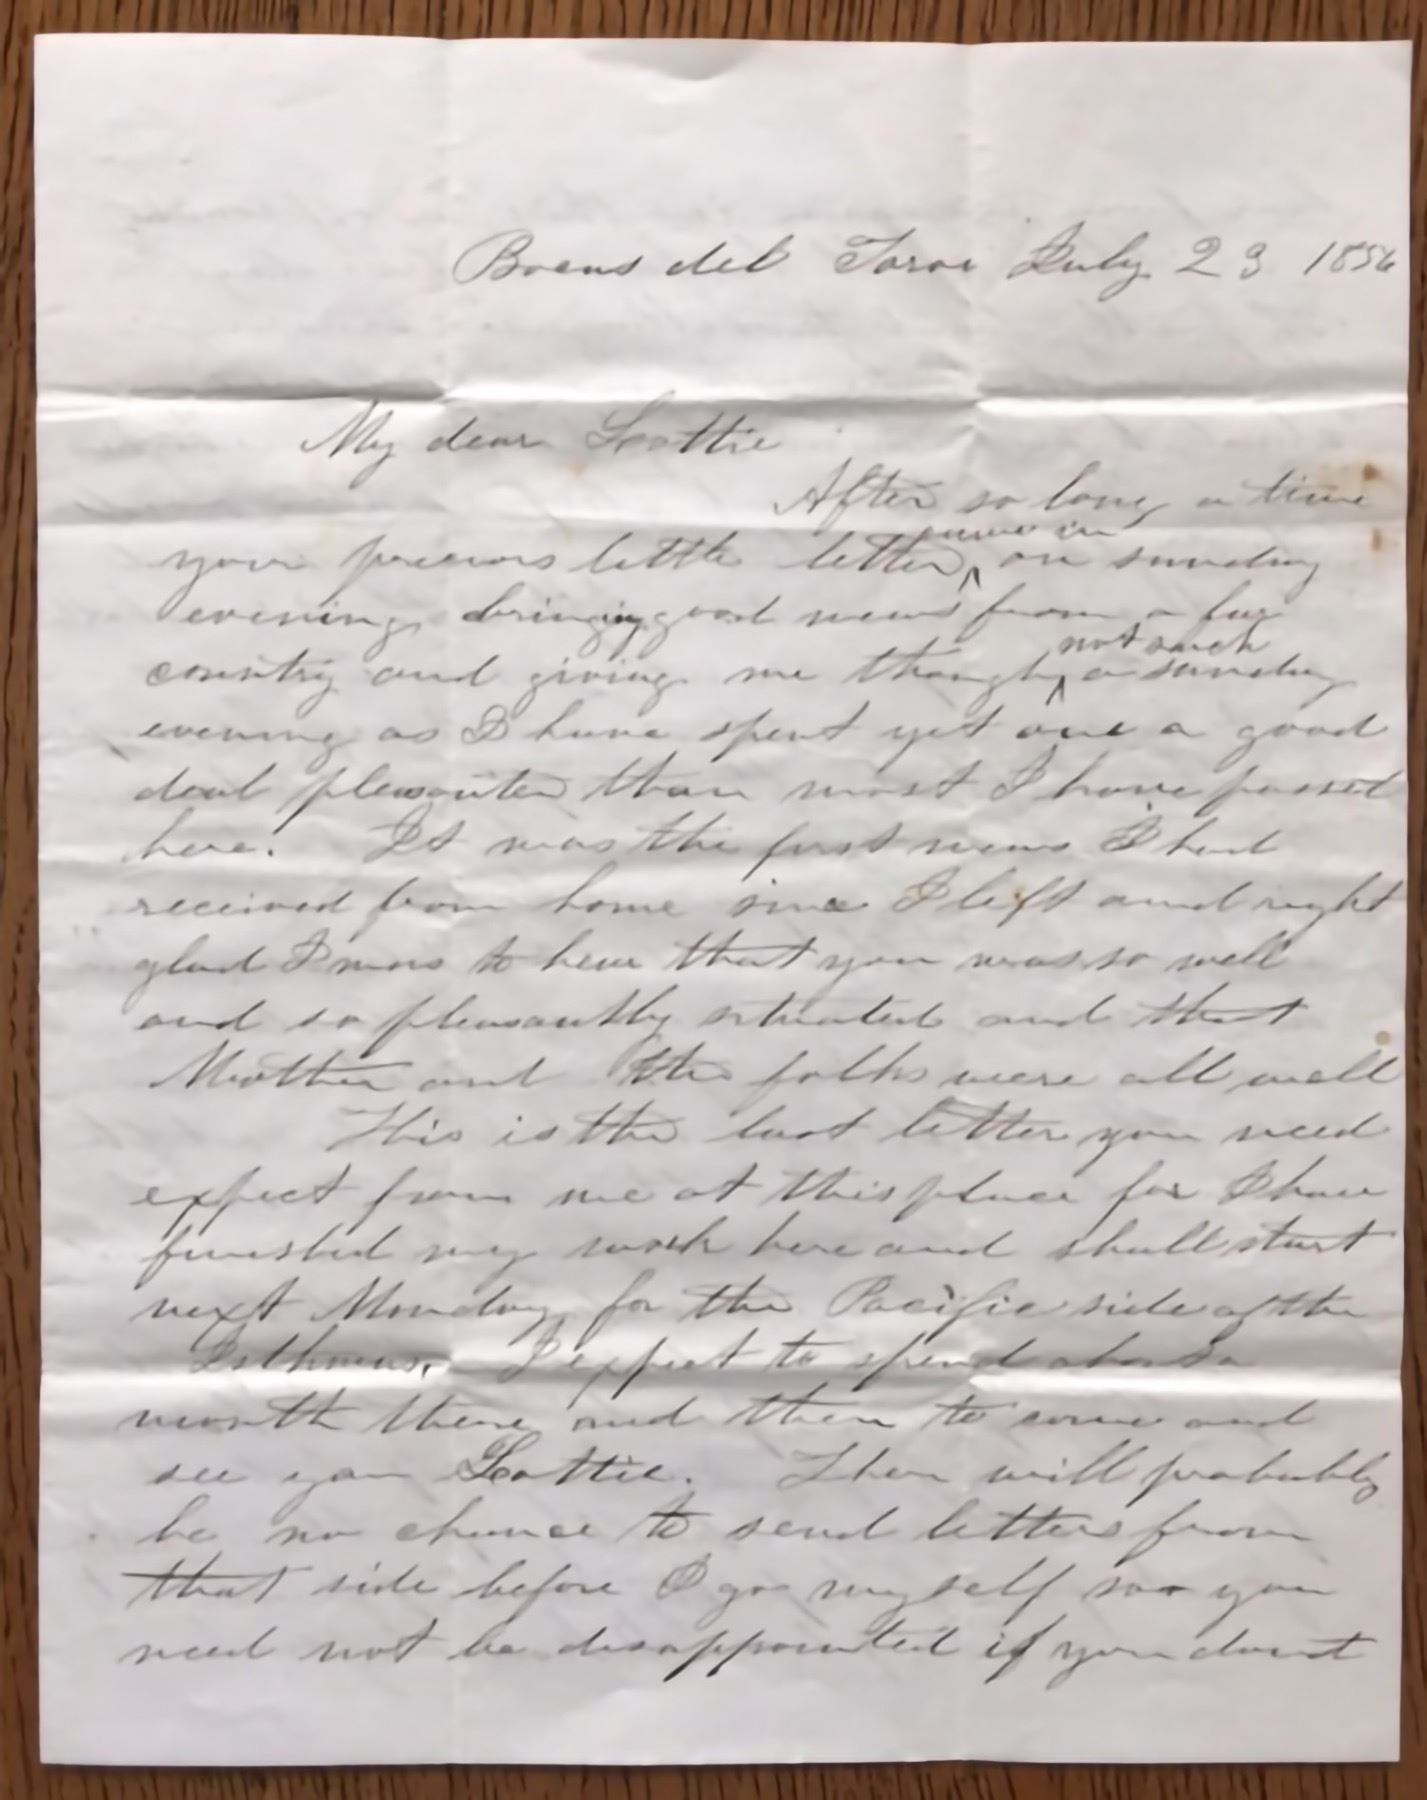 Bocus del Toros July 23 1856
My dear Lottie
After so long a time
your precious little letter, came in on sunday
evening bringing good news from a far
country and giving me though not such a sunday
evening as I have spent yet one a good
deal pleasanter than most I have passed
here. It was the first news I had
received from home since I left and right
glad I was to hear that you was so well
and so pleasantly situated and that
Mother and the folks were all well
This is the last letter you need
expect from me at this place for I have
finished my work here and shall start
next Monday for the Pacific side of the
Isthmus. I expect to spend about a
month there and then to come and
see you Lottie. There will probably
be no chance to send letters from
that side before I go myself so you
need not be disappointed if you dont